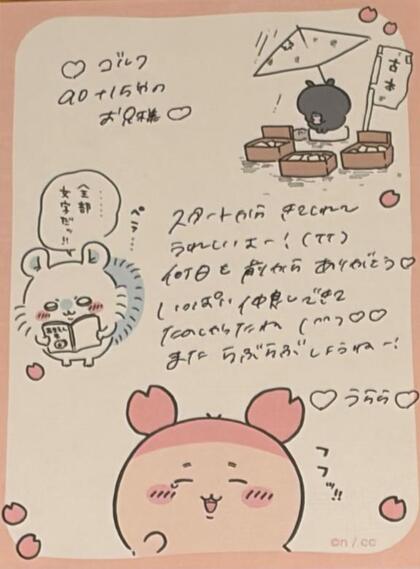 ♡ ゴルフ
90+15やの
お兄様♡
古本
……
全部
文字だッ!!
ペラ…
スタートから きてくれて
うれしいよー!(TT)
何日も前から ありがとう♡
いっぱい仲良しできて
たのしかったね (^^)♡♡
また らぶらぶしようねー!
♡ うらら ♡
フフッ!!
©n/.cc